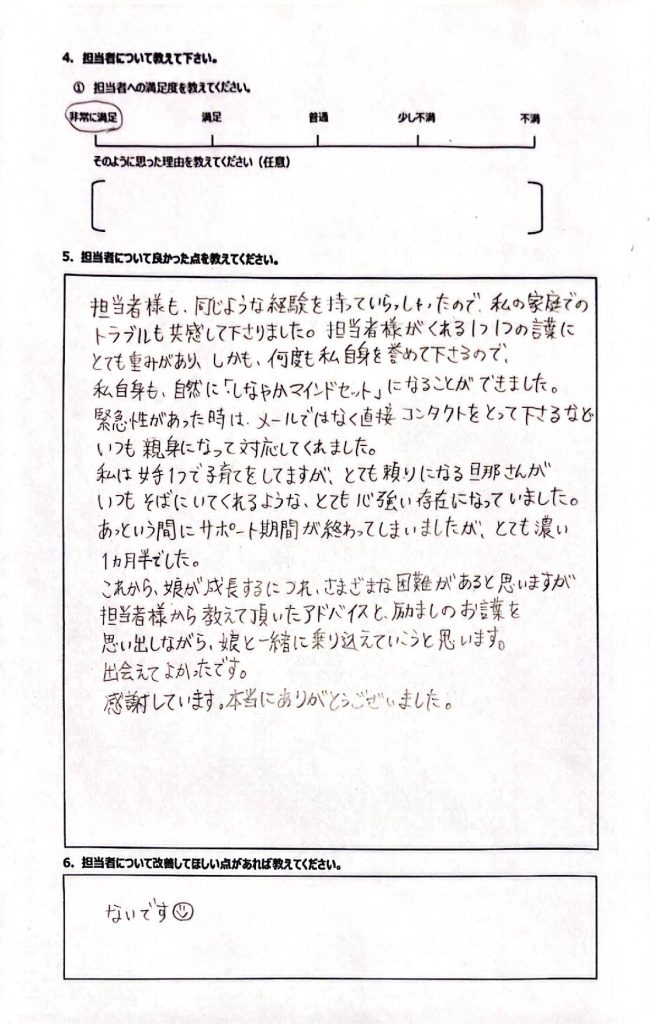 4. 担当者について教えて下さい。
① 担当者への満足度を教えてください。
非常に満足 満足 普通 少し不満 不満
そのように思った理由を教えてください（任意）
5. 担当者について良かった点を教えてください。
担当者様も、同じような経験を持っていらっしゃったので、私の家庭での
トラブルも共感して下さりました。担当者様がくれる1つ1つの言葉に
とても重みがあり、しかも、何度も私自身を誉めて下さるので、
私自身も、自然に「しなやかマインドセット」になることができました。
緊急性があった時は、メールではなく直接コンタクトをとって下さるなど
いつも親身になって対応してくれました。
私は女手1つで子育てをしてますが、とても頼りになる旦那さんが
いつもそばにいてくれるような、とても心強い存在になっていました。
あっという間にサポート期間が終わってしまいましたが、とても濃い
1ヵ月半でした。
これから、娘が成長するにつれ、さまざまな困難があると思いますが
担当者様から教えて頂いたアドバイスと、励ましのお言葉を
思い出しながら、娘と一緒に乗り込えていこうと思います。
出会えてよかったです。
感謝しています。本当にありがとうございました。
6. 担当者について改善してほしい点があれば教えてください。
ないです